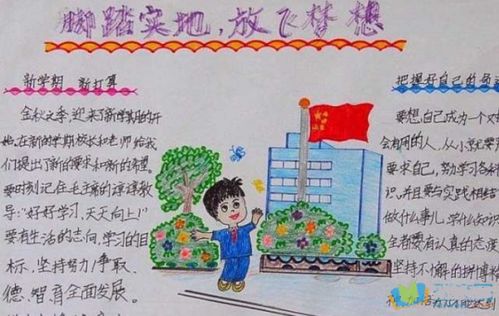 脚踏实地,放飞梦想
新学期 新打算
金秋之季,迎来了新学期的开
始。在新的学期校长和老师给我
们提出了新的要求和新的希望。
要时刻记住毛主席的谆谆教
导:"好好学习,天天向上!"
要有生活的志向,学习的目
标,坚持努力争取,
德、智、育全面发展。
把握好自己的
要想自己成为一个对
会有用的人,从小就要
要求自己,努力学习各种
识,并且要与实践相结
做什么事儿,学什么知识
全都要有认真的态度
坚持不懈的拼搏精
才能达到